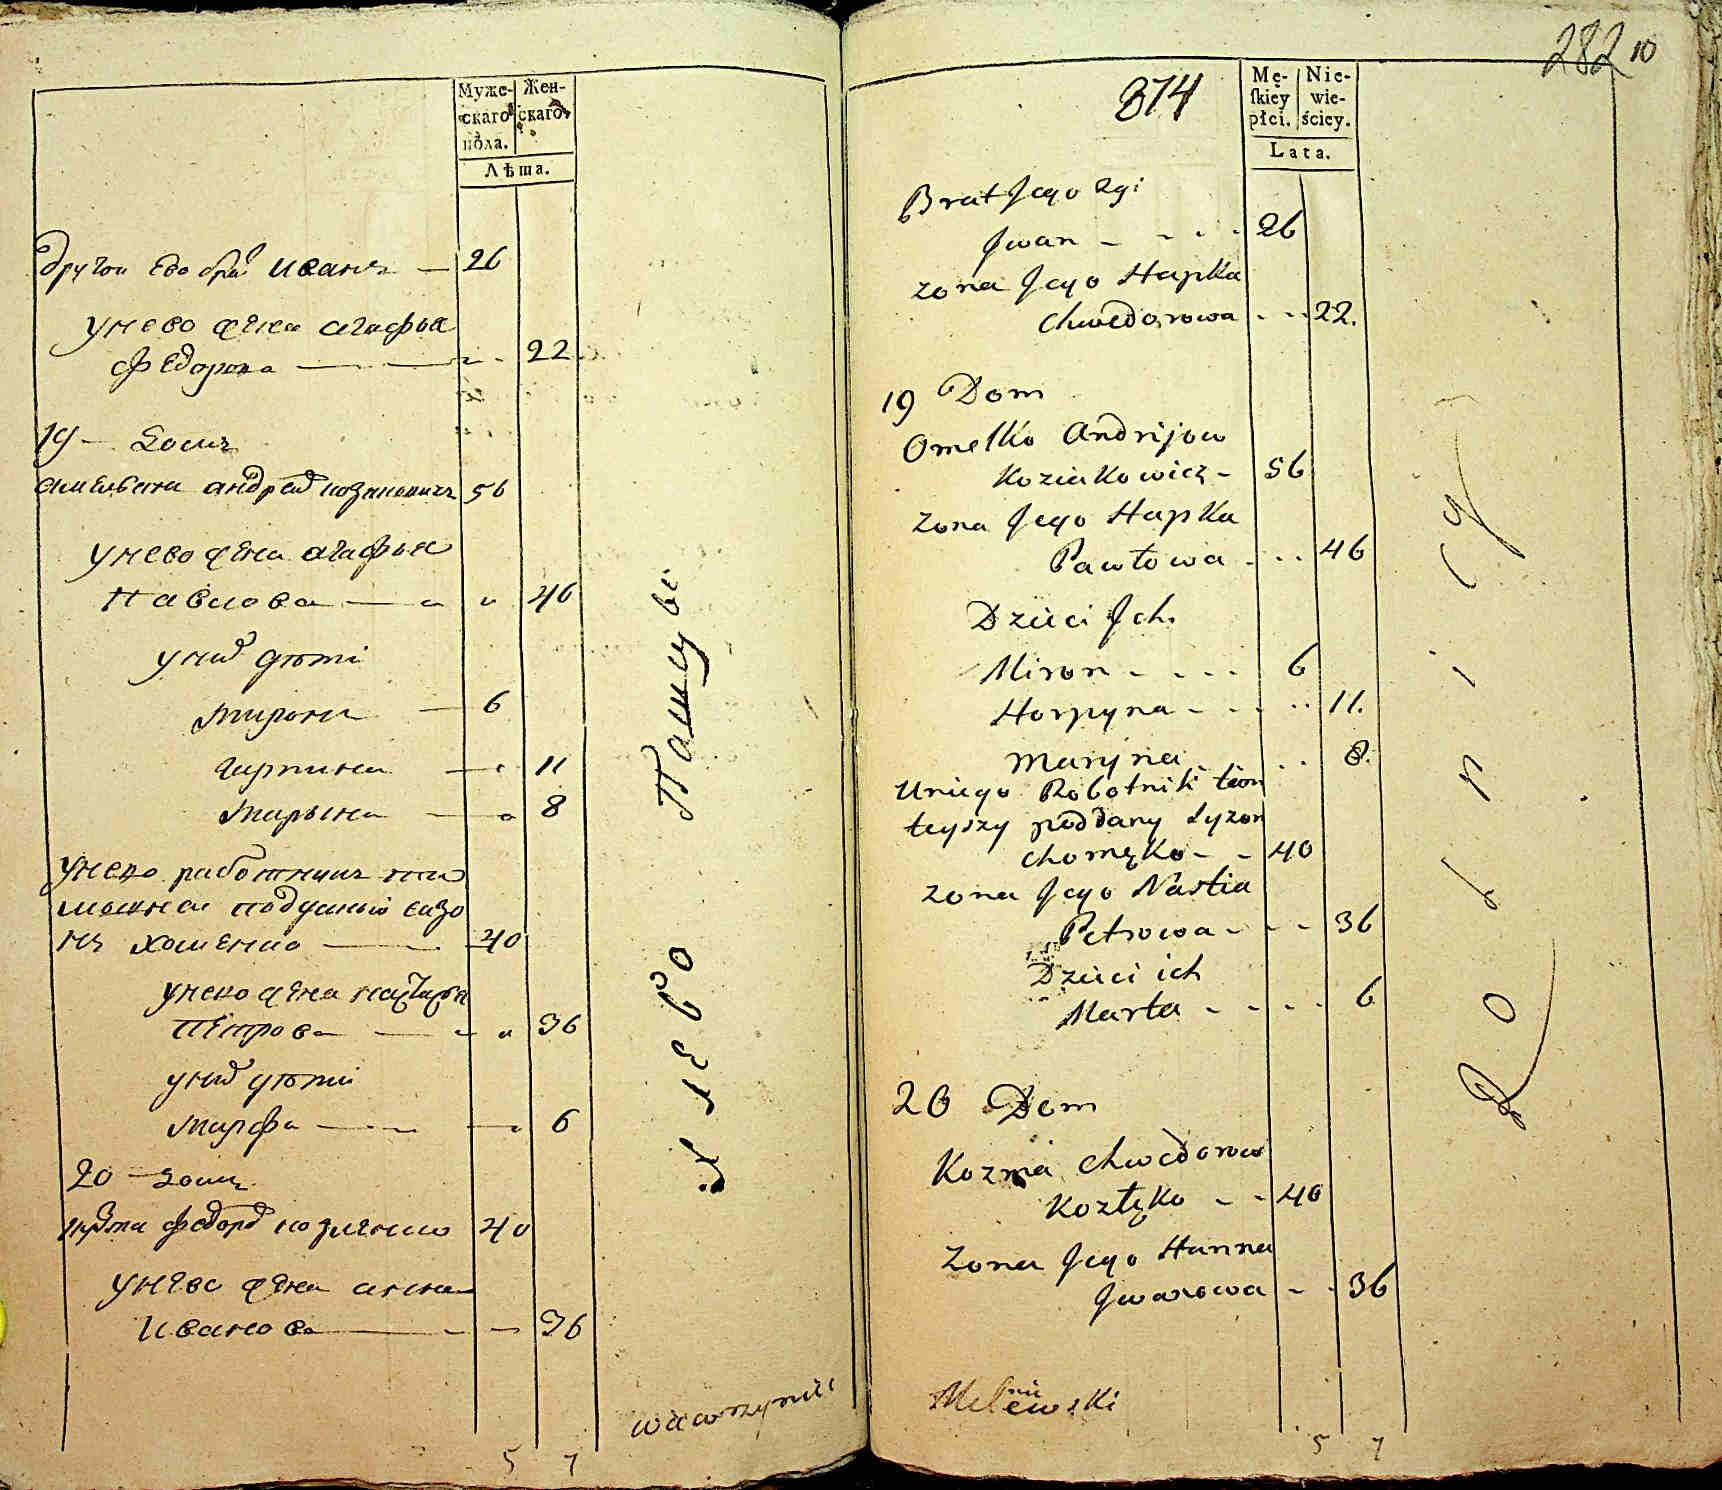 Муже-
скаго
пола.
Жен-
скаго
Лѣта.
другой его бра иванъ — 26
у нево жена агафья
федорова — 22
19 — домъ
амельянъ андреев козакевичъ 56
у нево жена агафья
павлова — 46
у них дѣти
миронъ — 6
гарпина — 11
марьина — 8
у нево работникъ
подданый сизо
нъ хоменко — 40
у нево жена настасья
петрова — 36
у них дѣти
марфа — 6
20 — домъ
кузма федоров козленко 40
у нево жена анна
иванова — 36
хлебо пашцы
wawrzyniec
5 7
282 10
874
Mę-
skiey
płci.
Nie-
wie-
ściey.
Lata.
Brat Jego 2gi
Jwan - - - - 26
zona Jego Hapka
Chwedorowa - - - 22.
19 Dom
Omelko Andrijow
Koziakowicz - 56
zona Jego Hapka
Pawłowa - - - 46
Dzieci Jch.
Miron - - - - 6
Horpyna - - - - 11.
Maryna - - - 8.
U niego Robotnik tam
teyszy poddany Syzon
Chomęko - - 40
zona Jego Nastia
Petrowa - - - 36
Dzieci ich
Marta - - - - 6
20 Dom
Kozma Chwedorow
Kozłęko - - 40
zona Jego Hanna
Jwanowa - - 36
Rolnicy
Melniewski
5 7